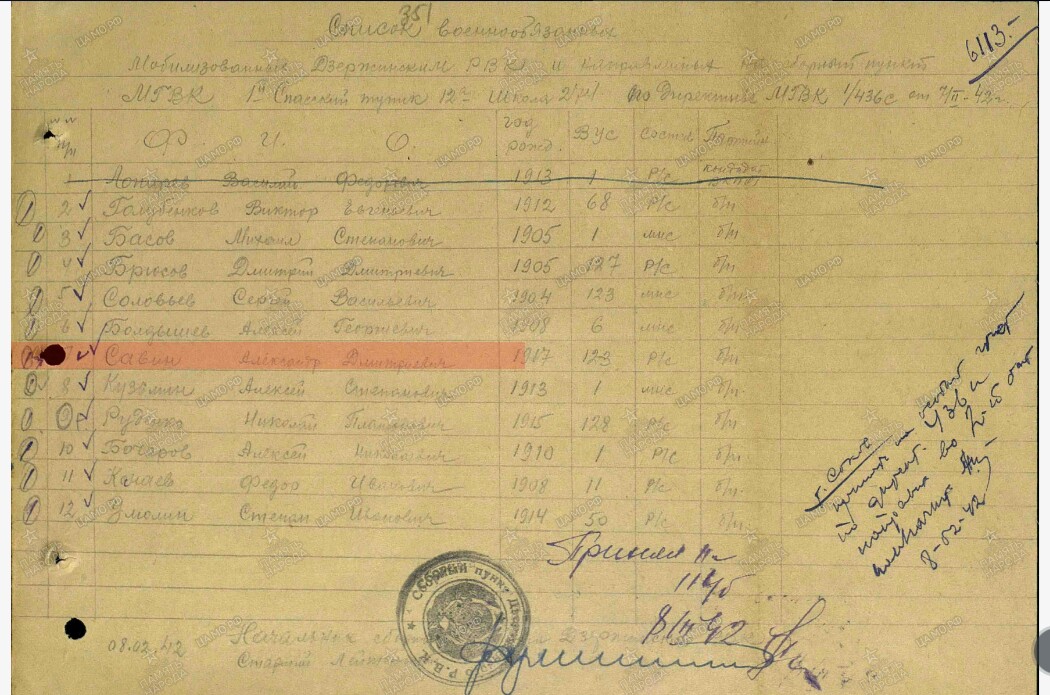 351
Список военнообязанных
6113.-
Мобилизованных Дзержинским РВК и направляемых на сборный пункт
МГВК 1й Спасский тупик 12а Школа по Директиве МГВК 1/436с от 7/II-42г.
№№ п/п Ф. И. О. год рожд. ВУС состав Партийн
1 Василий Федорович 1913 1 Р/с кандидат ВКП(б)
2 Голубенков Виктор Евгеньевич 1912 68 Р/с б/п
3 Басов Михаил Степанович 1905 1 мнс б/п
4 Брюсов Дмитрий Дмитриевич 1905 127 Р/с б/п
5 Соловьев Сергей Васильевич 1904 123 мнс б/п
6 Болдышев Алексей Георгиевич 1908 6 мнс б/п
7 Савин Александр Дмитриевич 1917 123 Р/с б/п
8 Кузьмин Алексей Степанович 1913 1 мнс б/п
9 Руденко Николай Платонович 1915 128 Р/с б/п
10 Бочаров Алексей Николаевич 1910 1 Р/с б/п
11 Канаев Федор Иванович 1908 11 Р/с б/п
12 Змолин Степан Иванович 1914 50 Р/с б/п
по директ. 436
направил во
8-02-42
Принял
8/II 42
Сборный пункт
Р.В.К.
08.02.42 Начальник
Старший Лейтенант